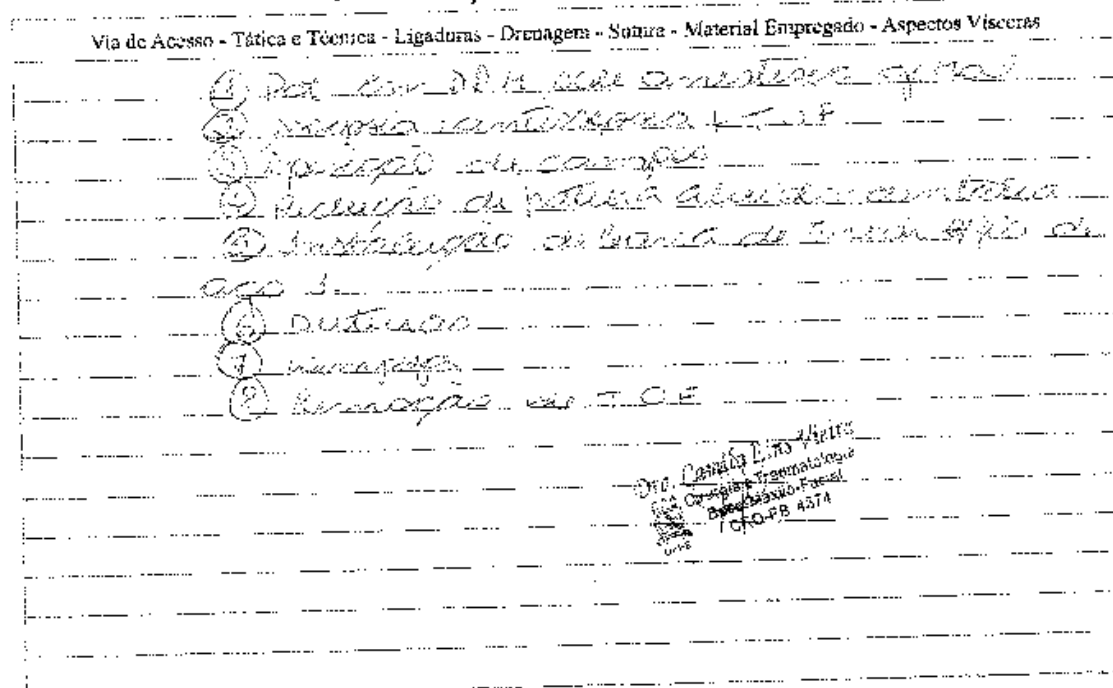 Via de Acesso - Tática e Técnica - Ligaduras - Drenagem - Sutura - Material Empregado - Aspectos Vísceras
① Pct em DDH sob anestesia geral
② Assepsia antissepsia
③ Aposição de campos
④ Redução de fratura alvéolo dentária
⑤ Instalação de barra de Erich de
aço
⑥ Sutura
⑦
⑧ Remoção de T.O.E
Dra. Camila Lino Vieira
Cirurgia e Traumatologia
Buco-Maxilo-Facial
CRO-PB 4374